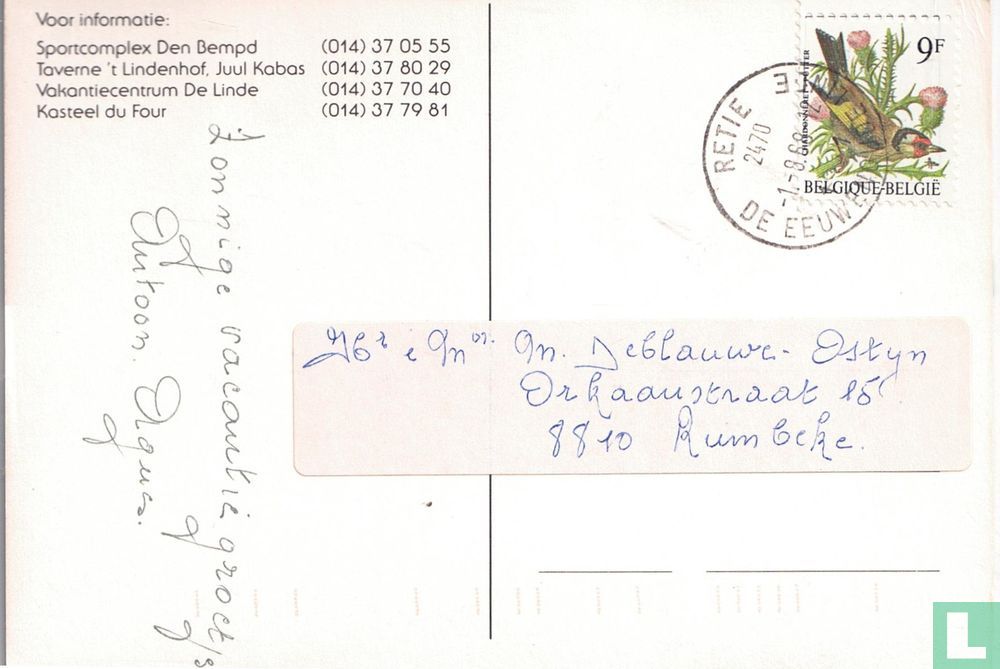 Voor informatie:
Sportcomplex Den Bempd (014) 37 05 55
Taverne 't Lindenhof, Juul Kabas (014) 37 80 29
Vakantiecentrum De Linde (014) 37 70 40
Kasteel du Four (014) 37 79 81
Zonnige vacantiegroetjs
Antoon. Agnes.
9F
CHARDONNERET-PUTTER
BELGIQUE-BELGIË
RETIE
2470
DE EEUWEL
Hr e Mvr. M. Deblauwe-Ostyn
Orkaanstraat 15
8810 Rumbeke.
L